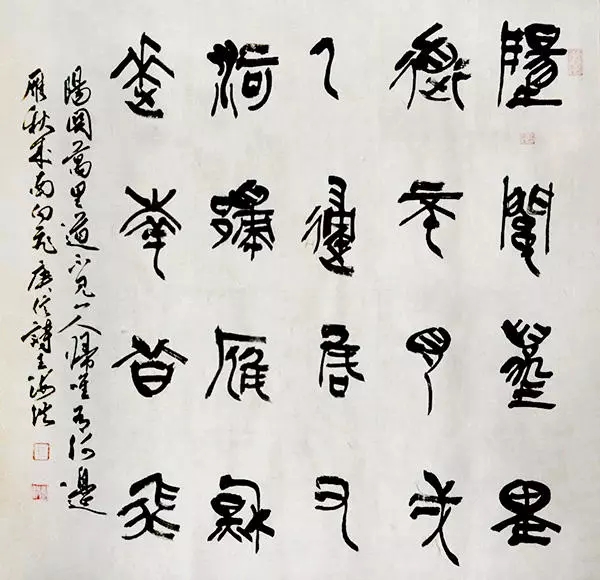 陽關萬里
道不見弌
人歸唯有
河邊雁秋
來南向飛
陽関萬里道不見一人歸唯有河邊
雁秋來南向飛庾信詩